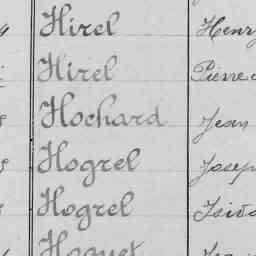 Hirel Henry
Hirel Pierre
Hochard Jean
Hogrel Josep
Hogrel Isido
Hoguet